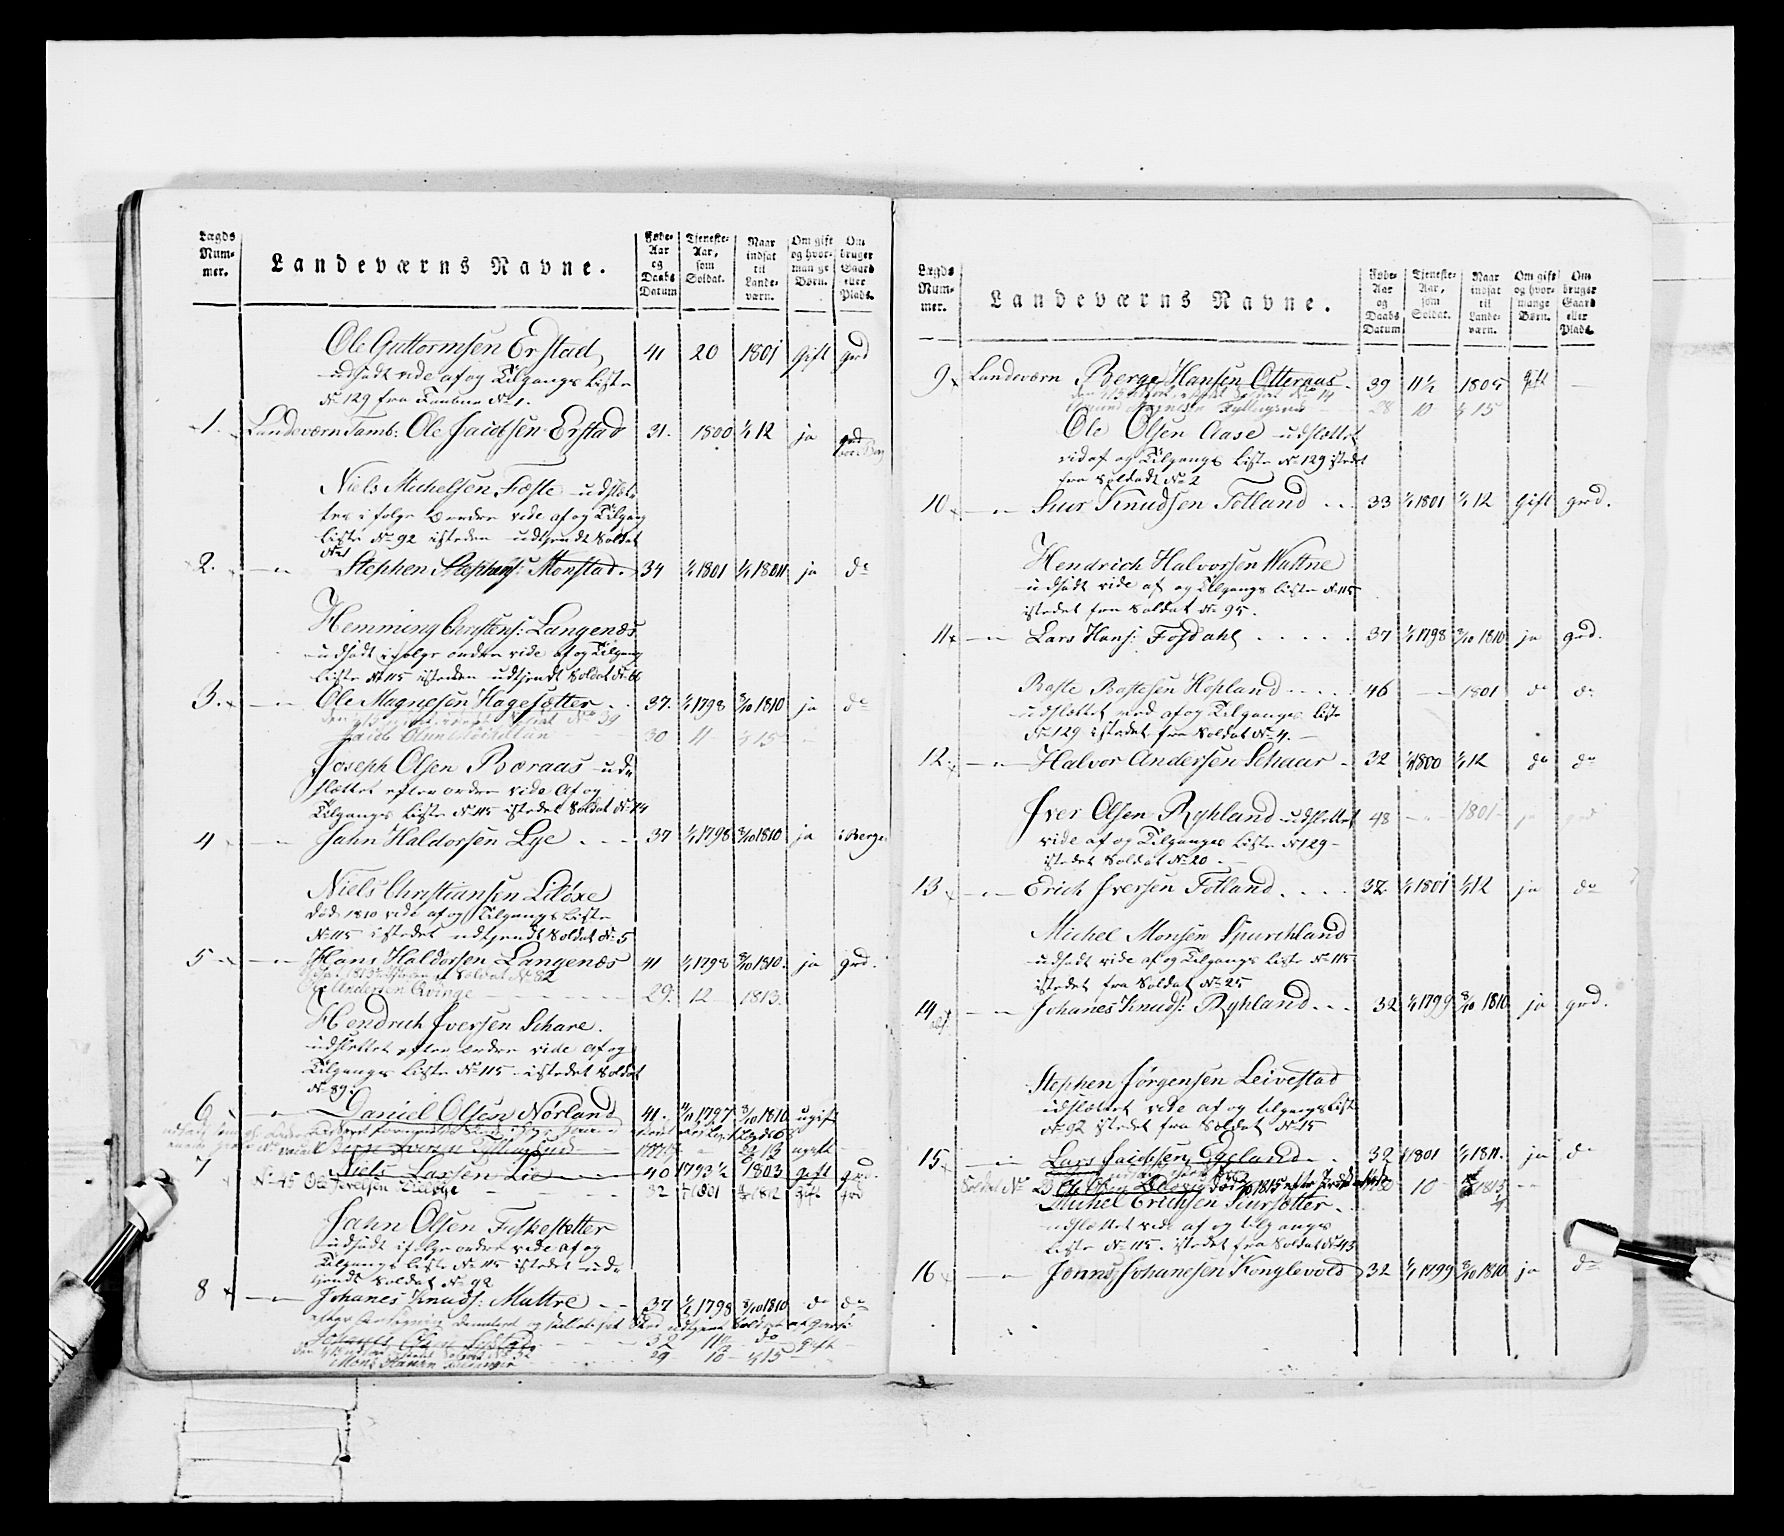 Lægds Num- mer.
Landeværns Navne.
Føde- Aar og Daabs Datum
Tjeneste- Aar, som Soldat.
Naar indsat til Lande- værn.
Om gift og hvor- man ge Børn.
Om bruger Gaard eller Plads.
Ole Guttormsen Erstad 41 20 1801 Gift grd
udsadt vide af og Tilgangs Liste
No 129 fra No 1.
1. Landeværn Tamb: Ole Jacobsen Erstad 31. 1800 1/1 12 ja grd
Niels Michelsen Feste udslæt-
tes i følge ordre vide af og Tilgang
Liste No 92 isteden udtjendt Soldat
2. Stephen Stephens: Monstad. 34 1/1 1801 1/1 1811 ja do
Hemming Christens: Langenæs
udsadt i følge ordre vide af og Tilgang
Liste No 115 isteden udtjendt Soldat No 66
3. Ole Magnesen Hagesætter 37. 1/1 1798 3/10 1810 ja do
30 11 1/1 15
Joseph Olsen Boraas ud-
slættet efter ordre vide Af og
Tilgangs Liste No 115 istedet Soldat No 74
4 Jahn Haldorsen Lye 37 1/1 1798 3/10 1810 ja i Bergen
Niels Christiansen Liløxe
død 1810 vide af og Tilgangs Liste
No 115 istedet udtjendt Soldat No 5
5 Hans Haldorsen Langenæs 41 1/1 1798 3/10 1810. ja grd.
Soldat No 82
Andersen Qvinge 29. 12 1813.
Hendrich Iversen Schare.
udslettet efter ordre vide af og
Tilgangs Liste No 115. istedet Soldat
No 89.
6 Daniel Olsen Nørland 41. 1797 3/10 1810 ugift
7 Niels Larsen Lie 40 1793 1/2 1803 gift grd.
No 45 Ole 32 1/1 1801 1812 gift grd
Jahn Olsen Fiskesætter
udsadt i følge ordre vide af og
Tilgangs Liste No 115 istedet ud-
tjends Soldat No 92
8 Johanes Knuds: Mattre 37 1/1 1798 3/10 1810 do do
32 11 1/2 do gift
29 10 1/1 15
Lægds Num- mer.
Landeværns Navne.
Føde- Aar og Daabs Datum
Tjeneste- Aar, som Soldat.
Naar indsat til Lande- værn.
Om gift og hvor- mange Børn.
Om bruger Gaard eller Plads.
9 Landeværn Berge Hansen Otternæs 39 11 1/2 1805 gift
28 10 1/1 15
Ole Olsen Aase udslættet
vid af og Tilgangs Liste No 129 istedet
fra Soldat No 2
10 Siur Knudsen Totland 33 1/1 1801 1/1 12 Gift grd.
Hendrich Halvorsen Wattne
udsadt vide af og Tilgangs Liste No 115
istedet fra Soldat No 95.
11 Lars Hans: Fosdahl 37 1/1 1798 3/10 1810 ja grd.
Boste Bostesen Hopland 46 1801 do do
udslættet ved af og Tilgangs Liste
No 129 istedet fra Soldat No 4.
12. Halvor Andersen Schaar 32 1/1 1800 1/1 12 do do
Iver Olsen Ryhland udslettet 48 1801 ja grd
vide af og Tilganges Liste No 129
istedet Soldat No 20
13 Erich Iversen Totland 32 1/1 1801 1/1 12 ja do
Michel Monsen Spurchland
udsadt vide af og Tilgangs Liste No 115
istedet fra Soldat No 25
14 Johanes Knuds: Ryhland 32 1/1 1799 3/10 1810 ja grd.
Stephen Jørgensen Leivestad
udslættet vide af og tilgangs Liste
No 92 istedet fra Soldat No 15
15 Lars Jacobsen Egeland 32 1801 1/1 1811. ja do
Soldat No Ole Olsen død 1815 efter 10 1815
Michel Erichsen Siursætter
udslættet vide af og tilganges
Liste No 115. istedet fra Soldat No 43
16 Jonas Johanesen Konglevold 32 1/1 1799 3/10 1810 ja do